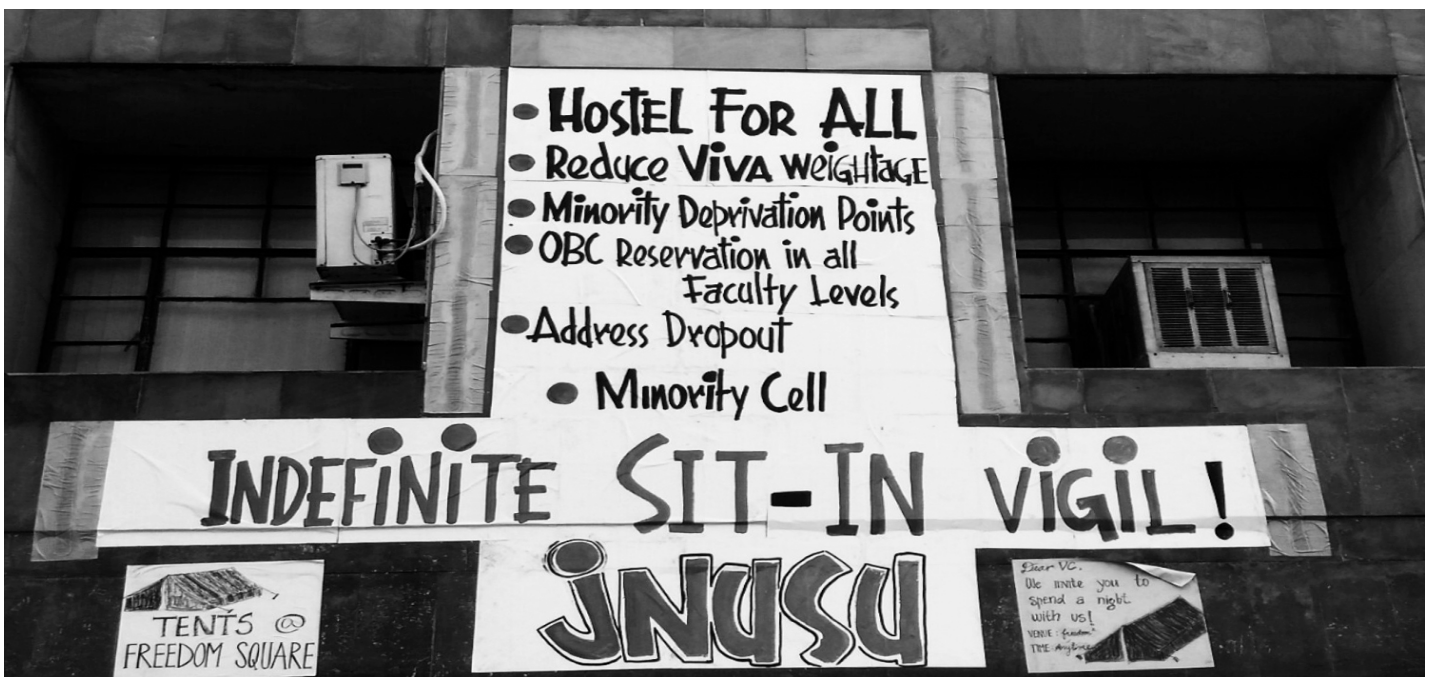 • HOSTEL FOR ALL
• Reduce VIVA WEIGHTAGE
• Minority Deprivation Points
• OBC Reservation in all
Faculty Levels
• Address Dropout
• Minority Cell
INDEFINITE SIT-IN VIGIL!
JNUSU
TENTS @
FREEDOM SQUARE
Dear VC.
We invite you to
spend a night
with us!
VENUE: freedom
TIME: Anytime